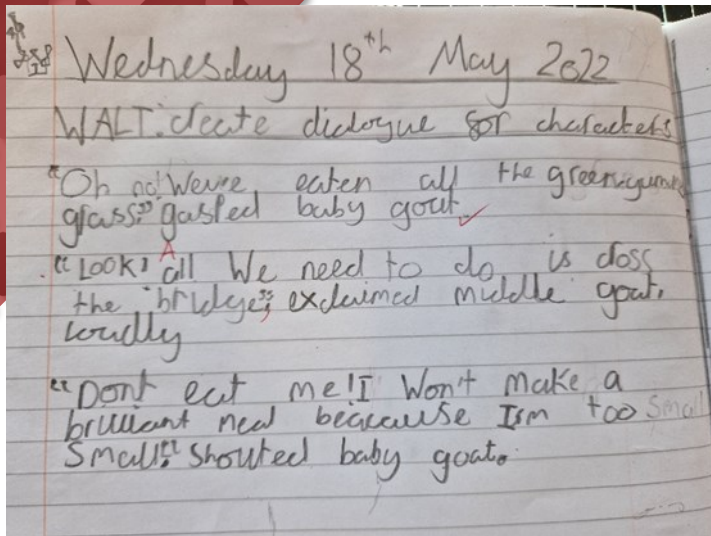 Wednesday 18th May 2022
WALT: create dialogue for characters
"Oh no! We've eaten all the green, yummy
grass!" gasped baby goat.
"Look! All We need to do is cross
the bridge", exclaimed middle goat,
loudly
"Dont eat me! I Won't make a
brilliant meal beacause I'm too Small
Small!" Shouted baby goat.